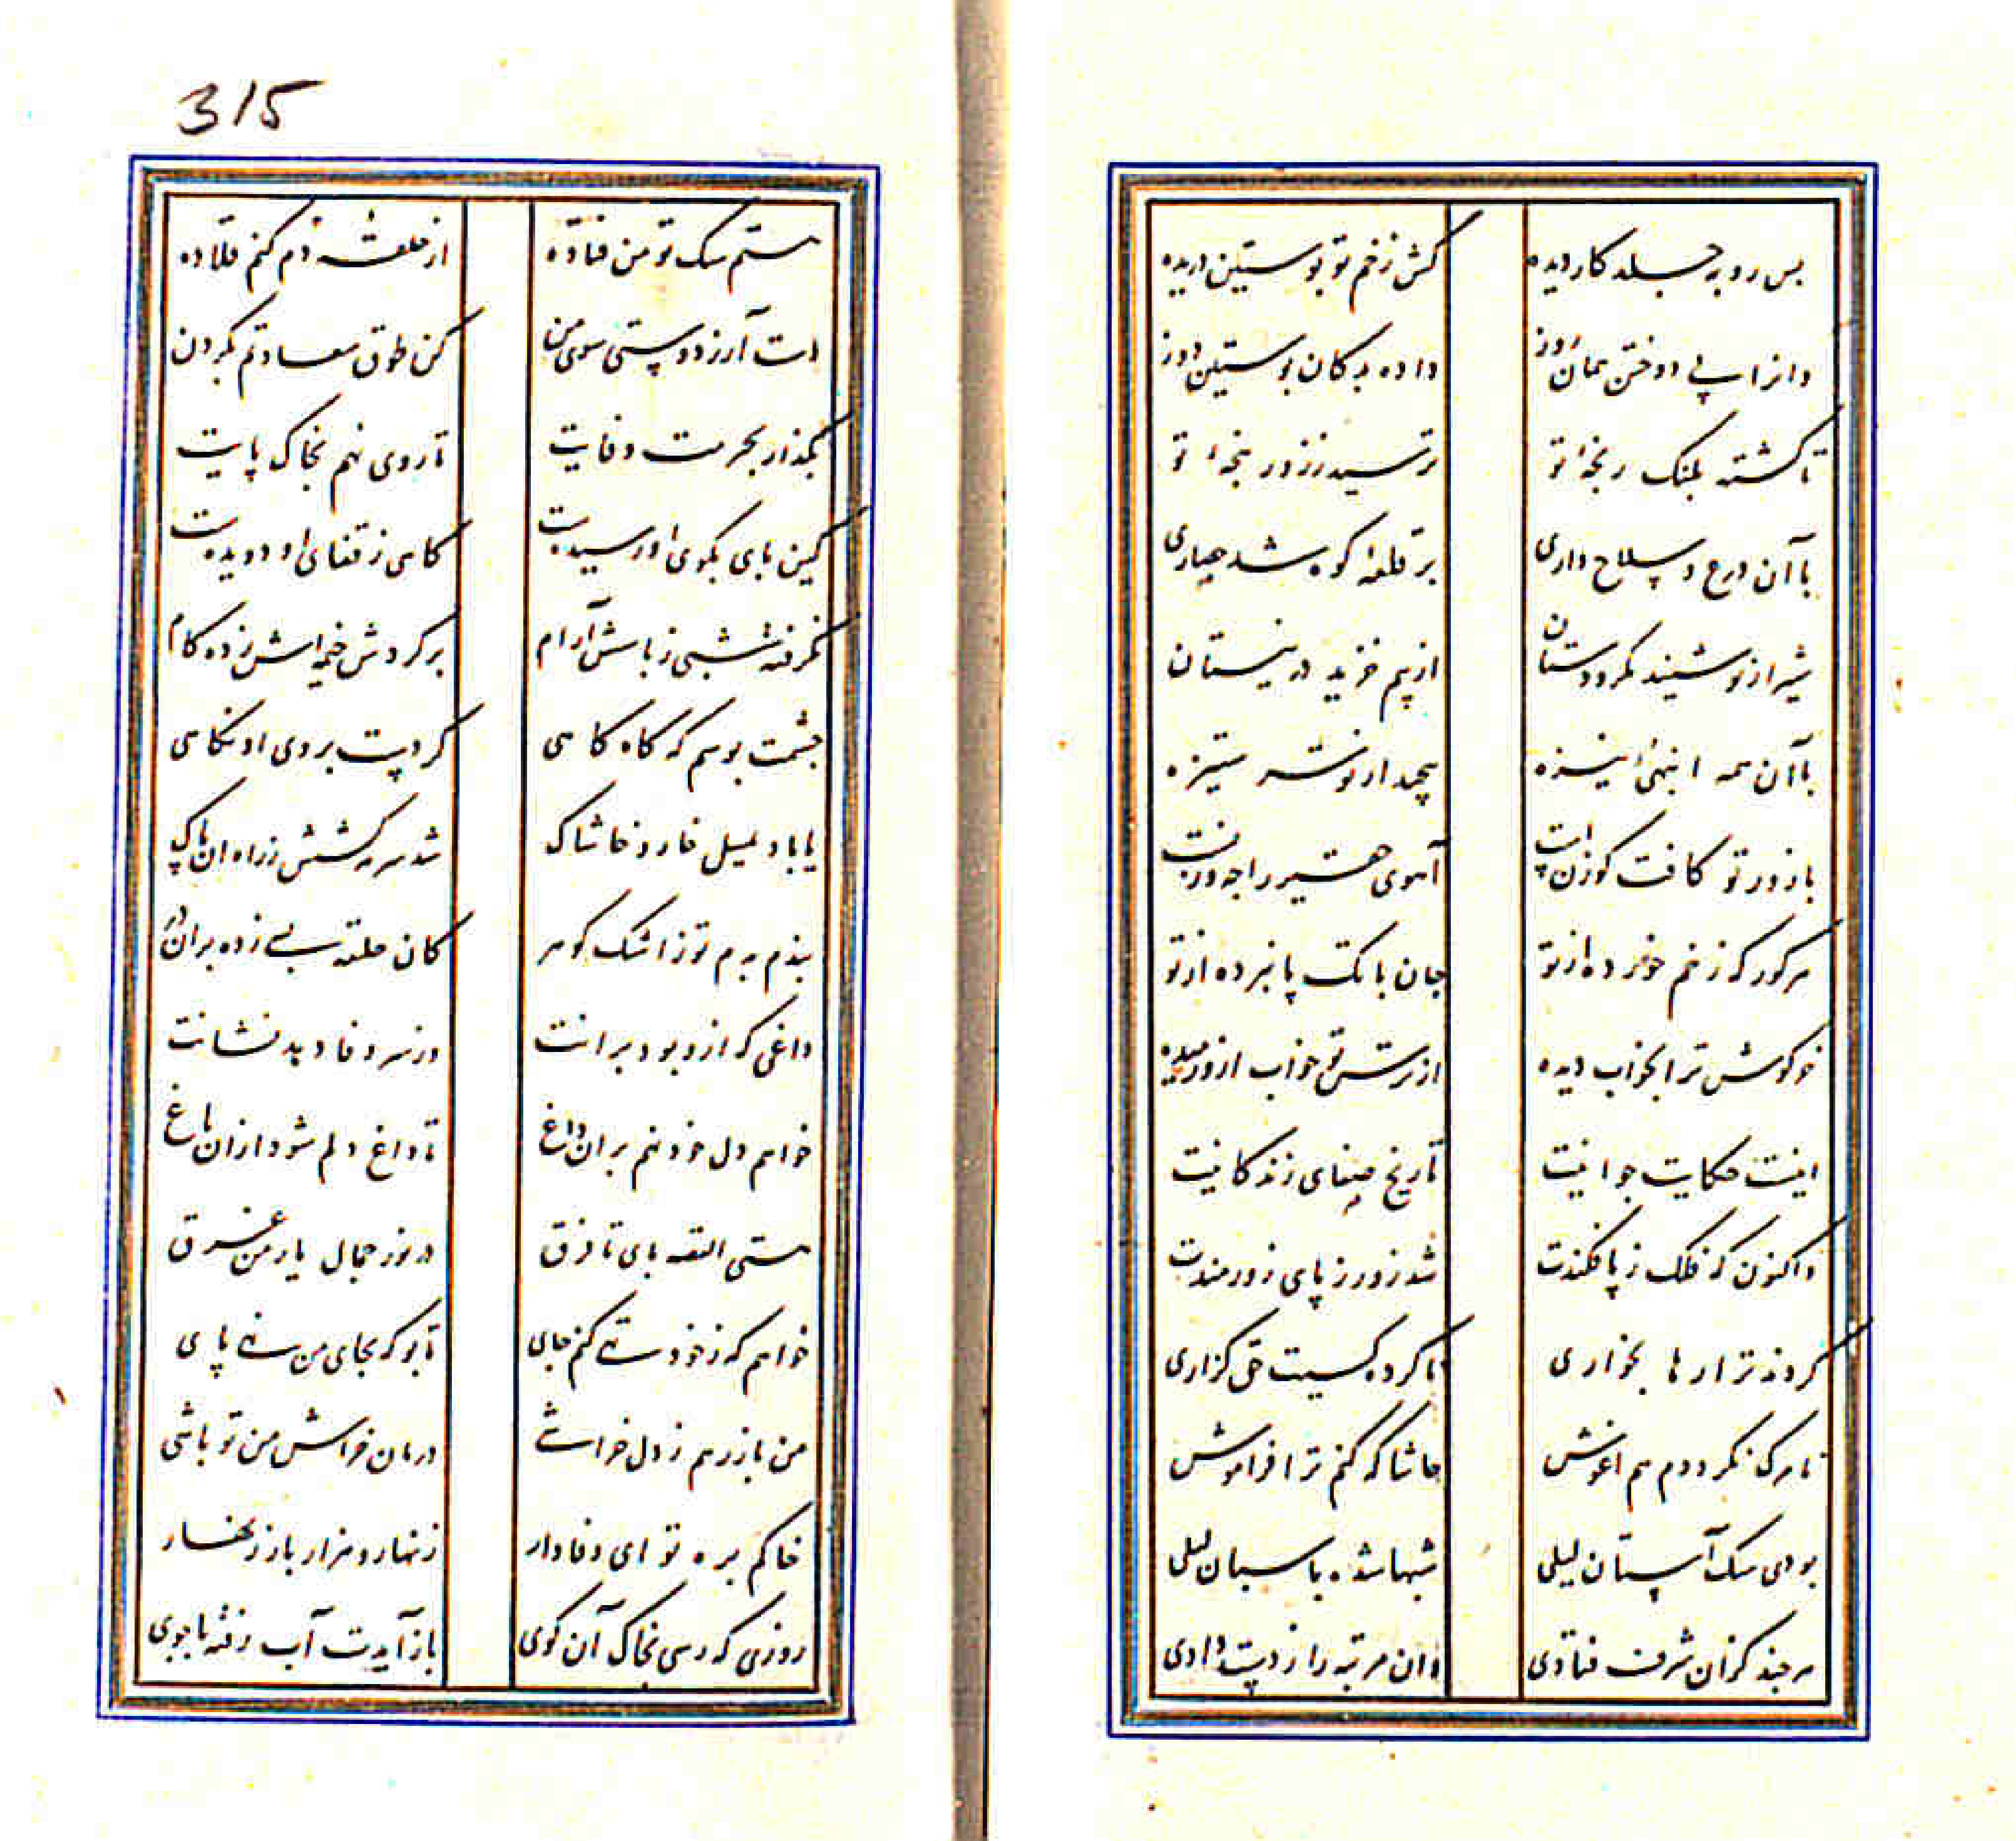 بس روبه حیله کار دیده
کش زخم تو پوستین دریده
وانرا پی دوختن همان روز
داده به دکان پوستین دوز
تا گشته پلنگ رنجهٔ تو
ترسیده ز زور پنجهٔ تو
با آن درع و سلاح داری
بر قلعهٔ کوه شد حصاری
شیر از تو شنید مکر و دستان
از بیم خزید در نیستان
با آن همه انبهی نیزه
پیچد از تو سر ستیزه
با زور تو کافت گوزن است
آهوی حقیر را چه وزنست
هر گور که زخم خورده از تو
جان با تک پا نبرده از تو
خرگوش ترا بخواب دیده
از ترس تو خواب ازو رمیده
اینت حکایت جوانیت
تاریخ صفای زندگانیت
واکنون که فلک ز پا فکندت
شد زور ز پای زورمندت
کردند ترا رها بخواری
ناکرده کسیت حق گزاری
تا مرگ نگرددم هم اغوش
حاشا که کنم ترا فراموش
بودی سگ آستان لیلی
شبها شده پاسبان لیلی
هر چند کزان شرف فتادی
وان مرتبه را ز دست دادی
315
هستم سگ تو من فتاده
از حلقهٔ دم کنم قلاده
دست آر ز دوستی سوی من
کن طوق سعادتم بگردن
بگذار بحرمت وفایت
تا روی نهم بخاک پایت
کین پای بکوی او رسیدست
گاهی ز قفای او دویدست
نگرفته شبی ز پاسش آرام
بر گرد ش خیمه اش زده گام
چشمت بوسم که گاه گاهی
کردست بروی او نگاهی
یا باد لمیل خار و خاشاک
شد سرمه کشش ز راه ان پاک
بندم به دم تو ز اشک گوهر
کان حلقه بسی زده بران در
داغی که ازو بود برانت
وز سر وفا دهد نشانت
خواهم دل خود نهم بران داغ
تا داغ دلم شود ازان باغ
هستی القصه پای تا فرق
در نور جمال یار من غرق
خواهم که ز خود تهی کنم جای
تا بو که بجای من نهی پای
من باز رهم ز دل خراشی
درمان خراش من تو باشی
خاکم بره تو ای وفادار
زنهار و هزار بار زنهار
روزی که رسی بخاک آن کوی
باز آیدت آب رفته با جوی